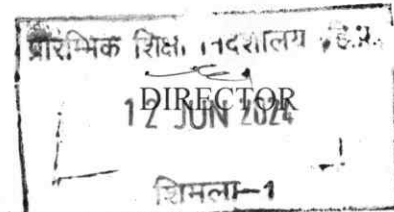 प्रारम्भिक शिक्षा निदेशालय हि.प्र.
DIRECTOR
12 JUN 2024
शिमला-1